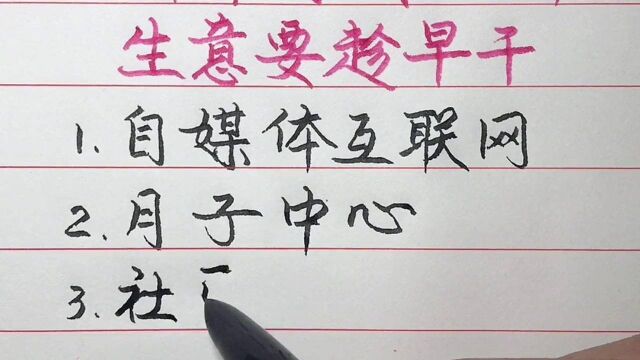 生意要趁早干
1.自媒体互联网
2.月子中心
3.社